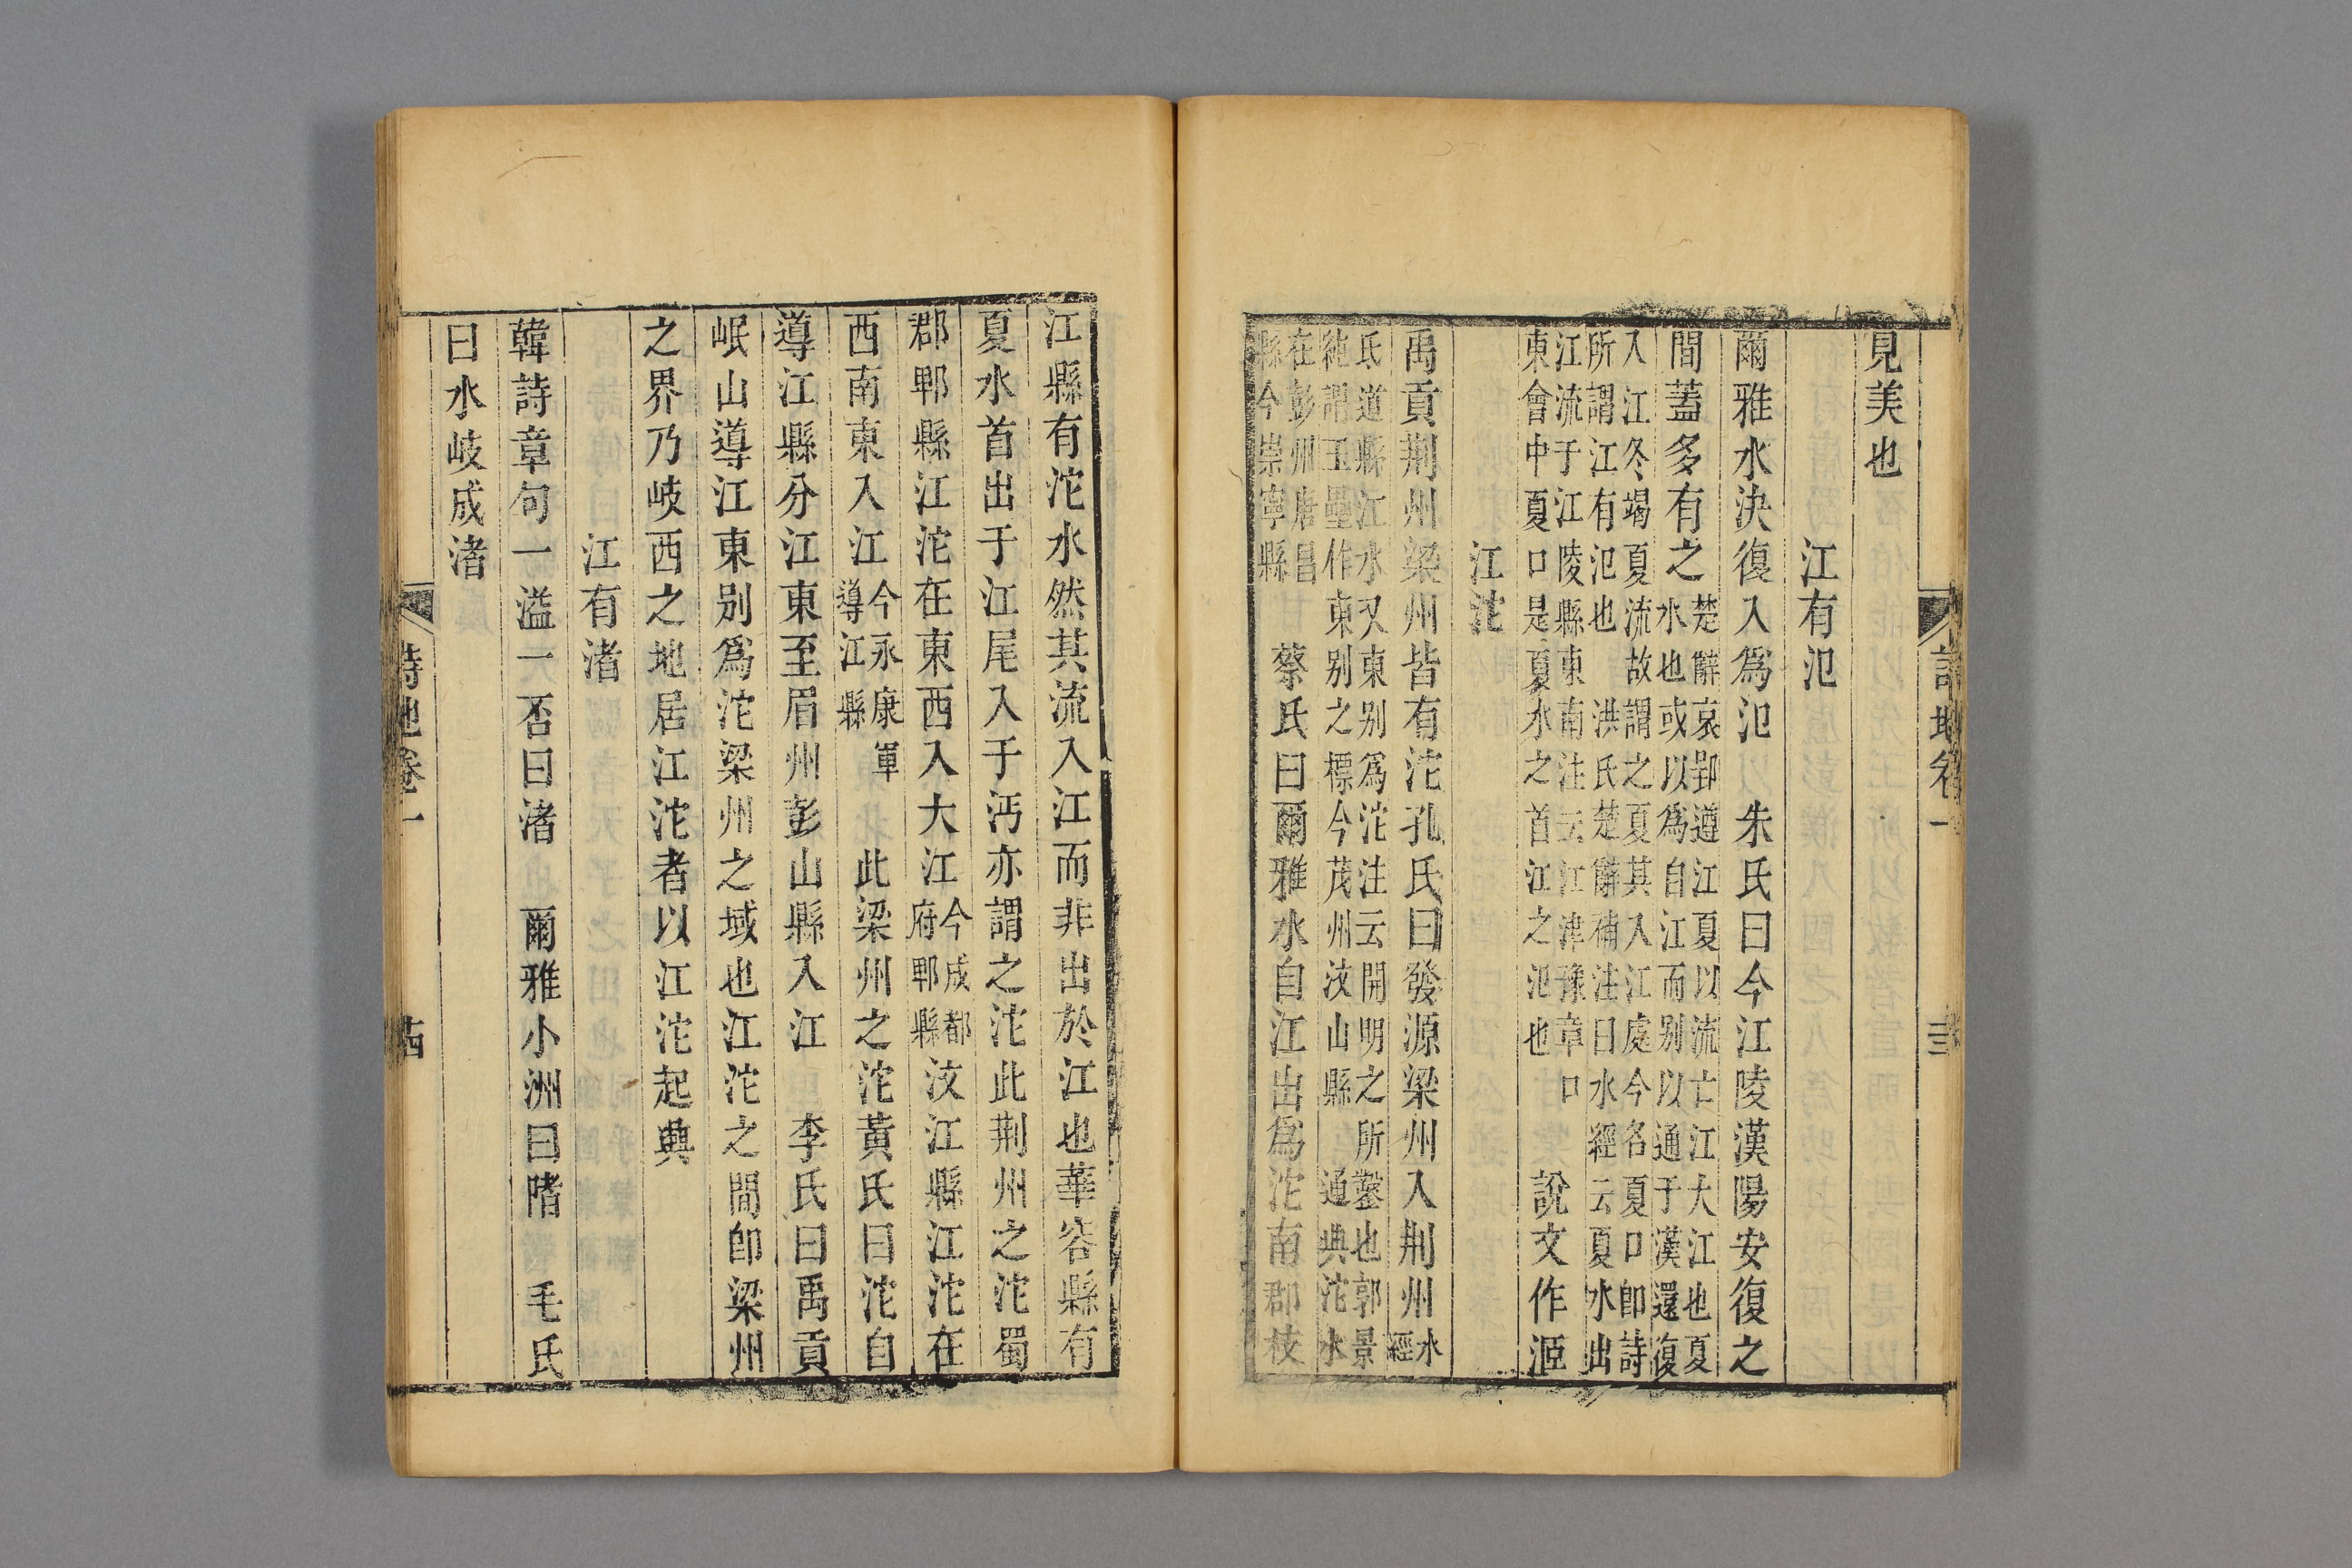 詩地卷一
見美也
江有汜
爾雅水決復入爲汜　朱氏曰今江陵漢陽安復之
間蓋多有之
楚辭哀郢遵江夏以流亡江大江也夏
水也或以爲自江而别以通于漢還復
入江冬竭夏流故謂之夏其入江處今名夏口即詩
所謂江有汜也　洪氏楚辭補注曰水經云夏水出
江流于江陵縣東南注云江津豫章口
東會中夏口是夏水之首江之汜也
說文作洍
江沱
禹貢荆州梁州皆有沱孔氏曰發源梁州入荆州
水
經
氐道縣江水又東别爲沱注云開明之所鑿也郭景
純謂玉壘作東别之標今茂州汶山縣　通典沱水
在彭州唐昌
縣今崇寧縣
蔡氏曰爾雅水自江出爲沱南郡枝
江縣有沱水然其流入江而非出於江也華容縣有
夏水首出于江尾入于沔亦謂之沱此荆州之沱蜀
郡郫縣江沱在東西入大江
今成都
府郫縣
汶江縣江沱在
西南東入江
今永康軍
導江縣
此梁州之沱黃氏曰沱自
導江縣分江東至眉州彭山縣入江　李氏曰禹貢
岷山導江東别爲沱梁州之域也江沱之間即梁州
之界乃岐西之地居江沱者以江沱起典
江有渚
韓詩章句一溢一否曰渚　爾雅小洲曰陼　毛氏
曰水岐成渚
詩地卷一